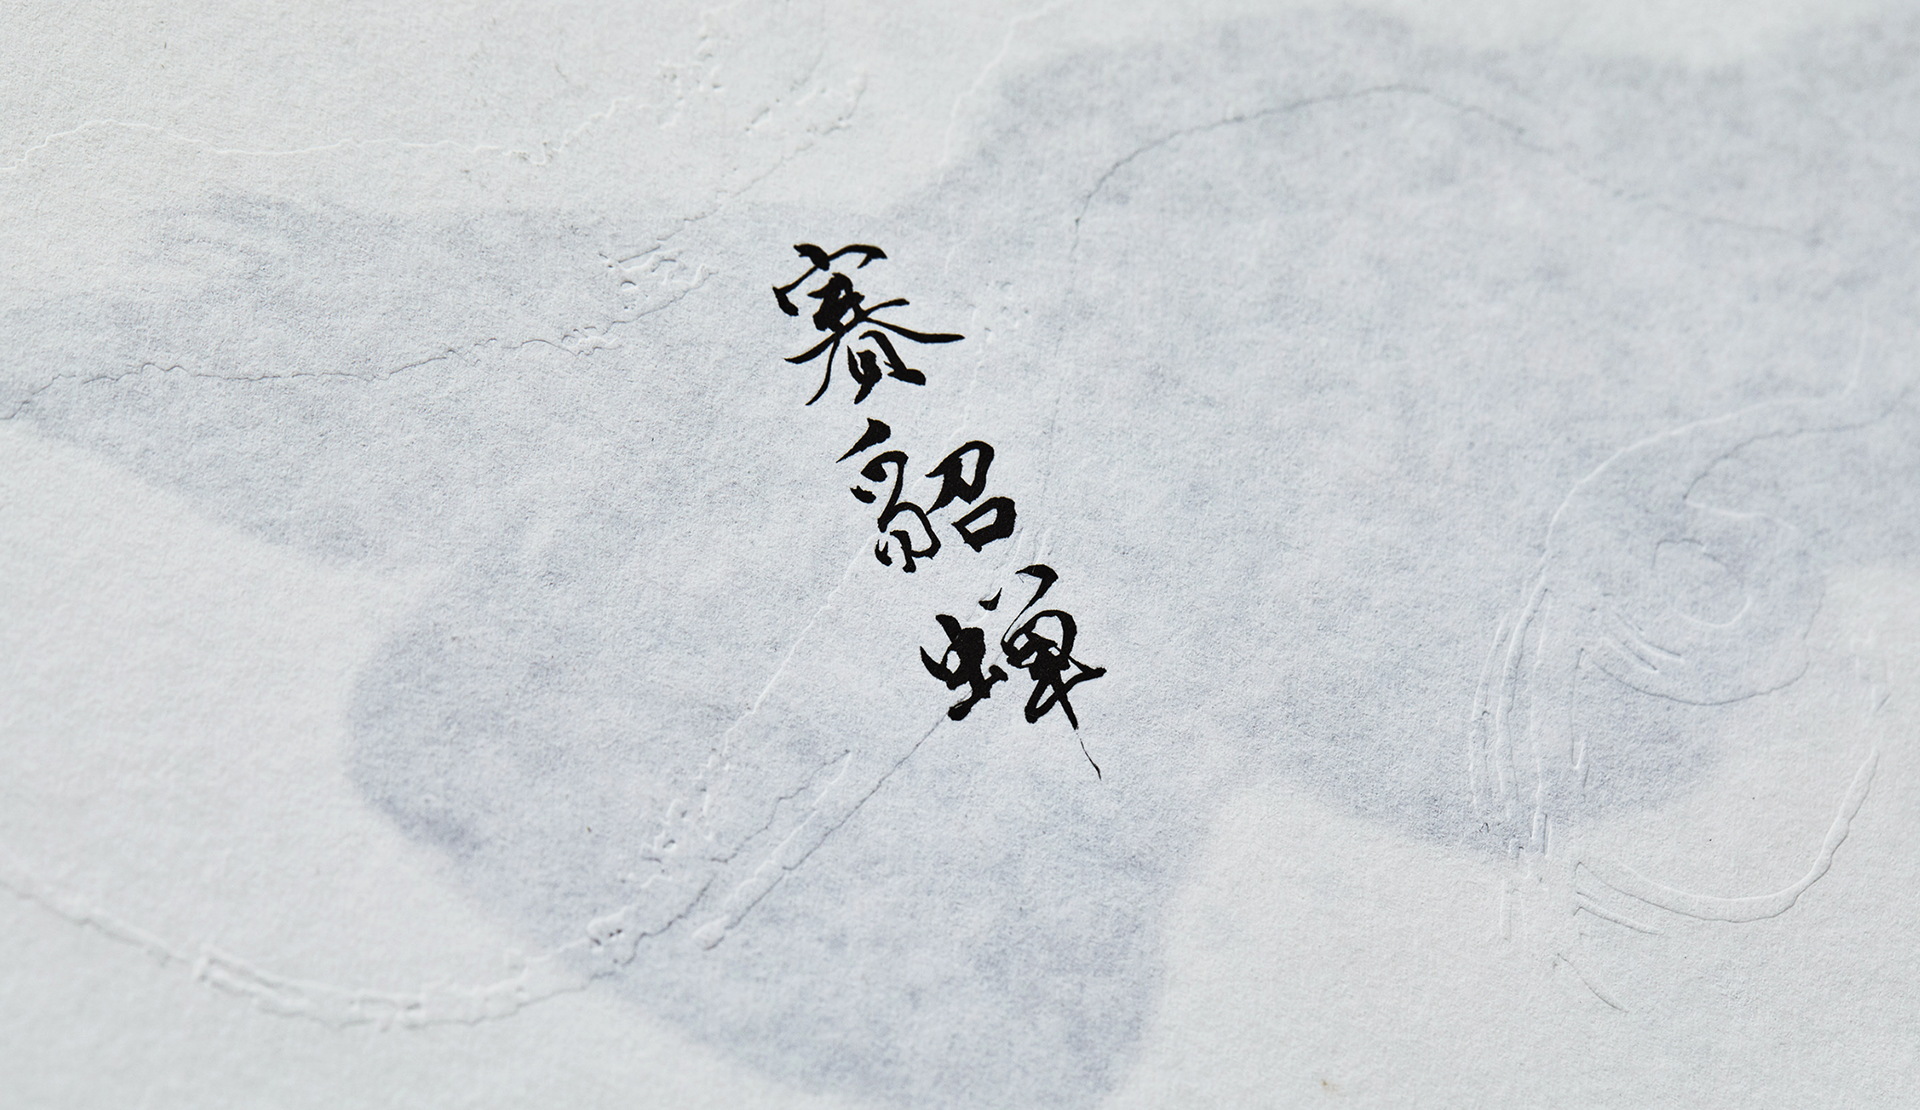 赛貂蝉